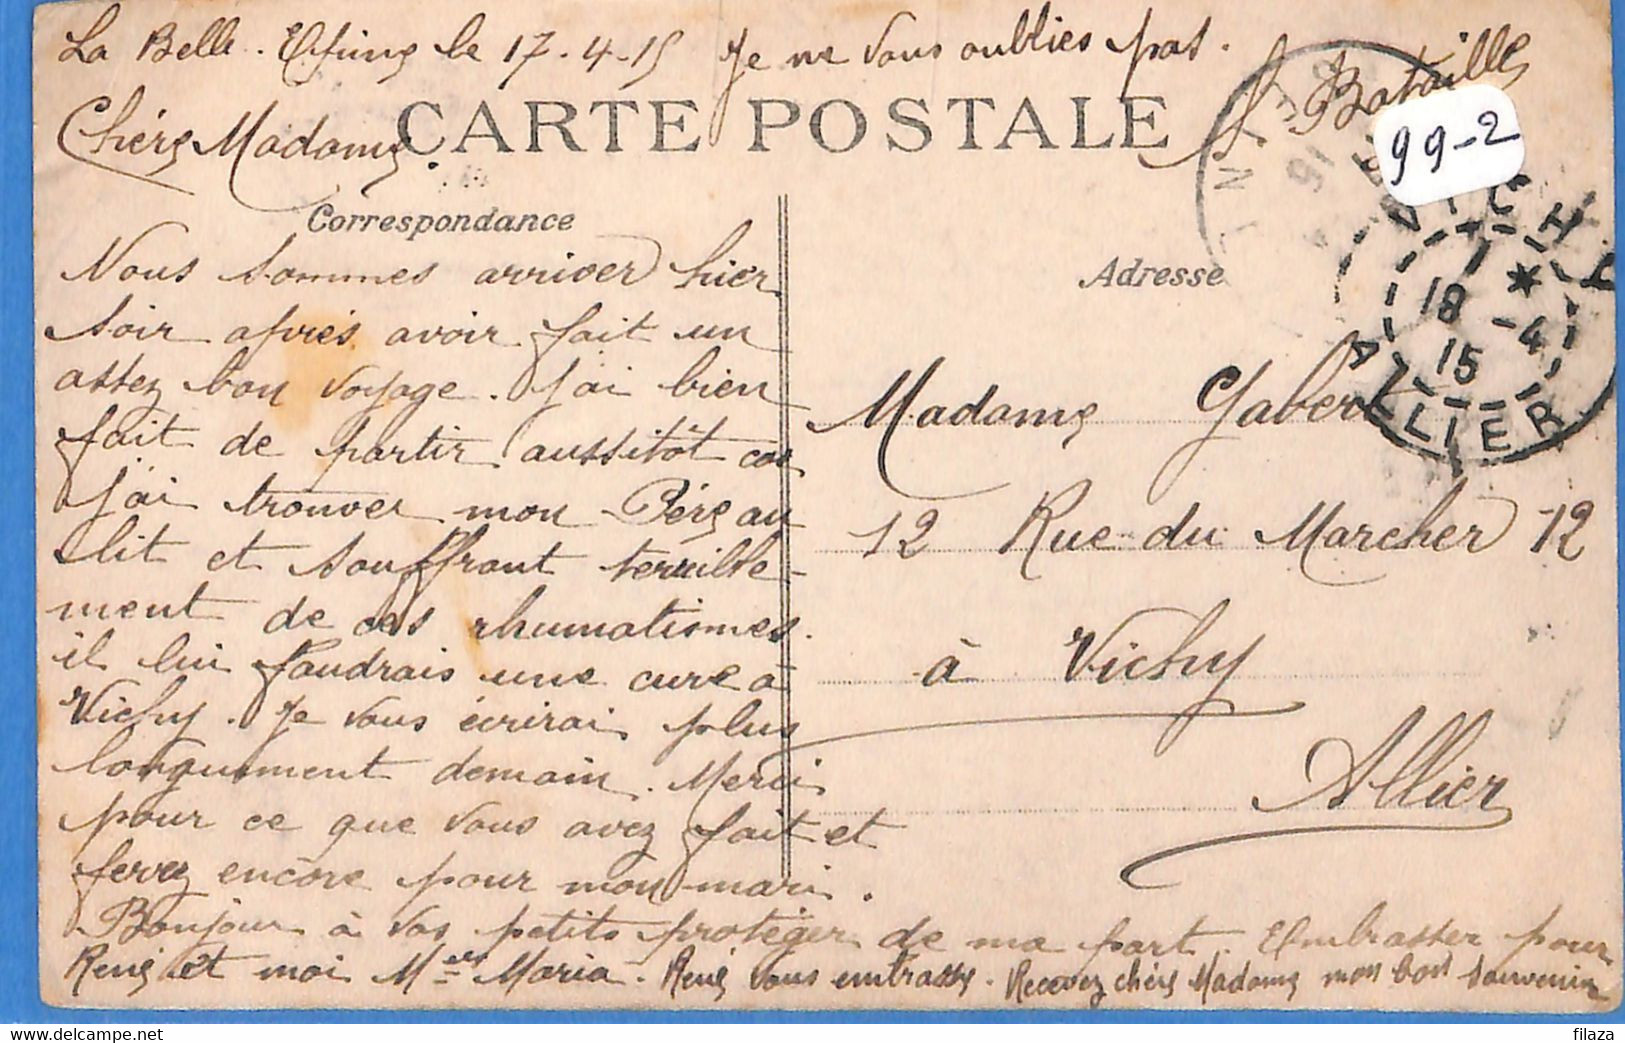 La Belle. Epine le 17-4-15 Je ne vous oublies pas.
L Bataille
CARTE POSTALE
99-2
Chére Madame.
Correspondance
Nous sommes arriver hier
soir aprés avoir fait un
assez bon voyage. J'ai bien
fait de partir aussitôt car
j'ai trouver mon Pére au
lit et souffrant terrible-
ment de ces rhumatismes.
il lui faudrais une cure à
Vichy. Je vous écrirai plus
longuement demain. Merci
pour ce que vous avez fait et
ferez encore pour mon mari.
Bonjour à vos petits protéger de ma part. Embrasser pour
René et moi Melle Maria. René vous embrasse. Recevez chére Madame mon bon souvenir
Adresse
Madame Gabert
12 Rue du Marcher 12
à Vichy
Allier
VICHY
18 -4
15
ALLIER
filaza